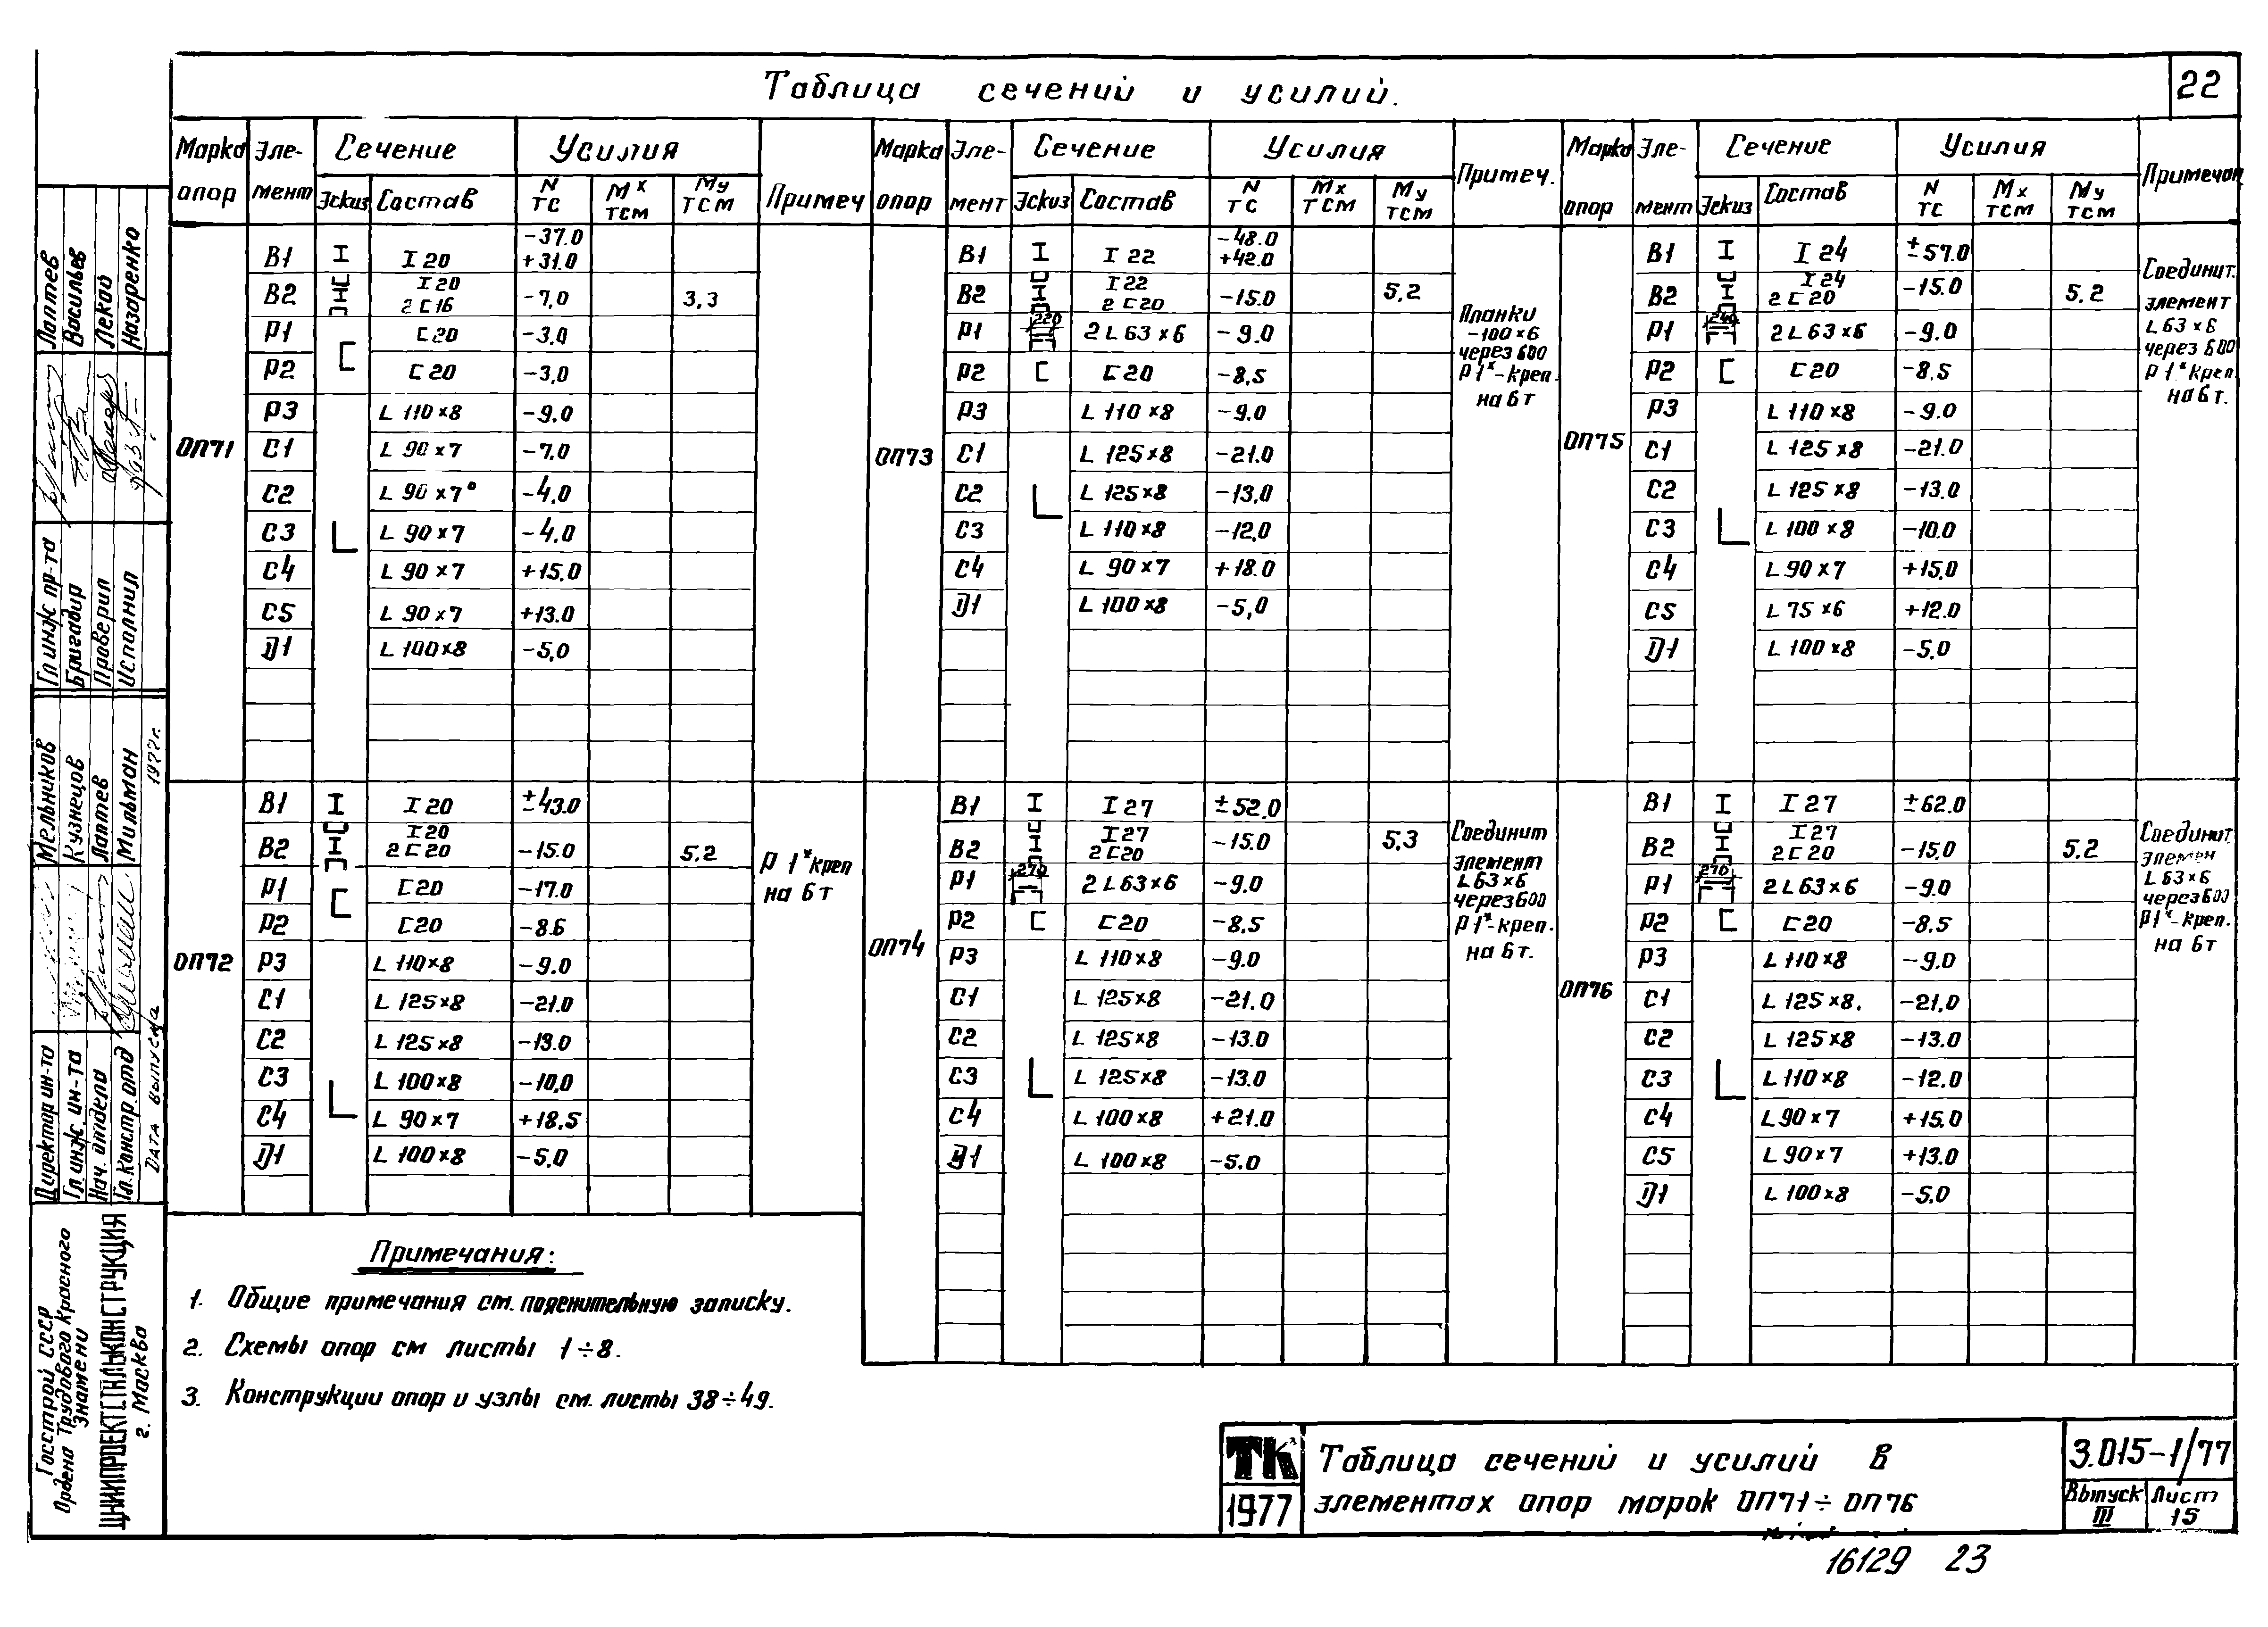 22
Таблица сечений и усилий.
Марка опор Элемент Сечение Усилия Примеч
Эскиз Состав N тс Mx тсм My тсм
ОП71
В1 I 20 -37.0 +31.0
В2 I 20 2 [ 16 -7,0 3,3
Р1 [ 20 -3,0
Р2 [ 20 -3,0
Р3 L 110×8 -9.0
С1 L 90×7 -7,0
С2 L 90×7 -4.0
С3 L 90×7 -4.0
С4 L 90×7 +15.0
С5 L 90×7 +13.0
Д1 L 100×8 -5,0
ОП72
В1 I 20 ±43.0
В2 I 20 2 [ 20 -15.0 5.2
Р1 [ 20 -17.0
Р2 [ 20 -8.6
Р3 L 110×8 -9.0
С1 L 125×8 -21.0
С2 L 125×8 -13.0
С3 L 100×8 -10,0
С4 L 90×7 +18.5
Д1 L 100×8 -5.0
Р1* креп
на 6т
Марка опор Элемент Сечение Усилия Примеч.
Эскиз Состав N тс Mx тсм My тсм
ОП73
В1 I 22 -48.0 +42.0
В2 I 22 2 [ 20 -15.0 5.2
Р1 220 2 L 63×6 -9.0
Р2 [ 20 -8.5
Р3 L 110×8 -9.0
С1 L 125×8 -21.0
С2 L 125×8 -13.0
С3 L 110×8 -12,0
С4 L 90×7 +18.0
Д1 L 100×8 -5,0
Планки
-100×6
через 600
Р1*-креп.
на 6т
ОП74
В1 I 27 ±52.0
В2 I 27 2 [ 20 -15.0 5.3
Р1 270 2 L 63×6 -9.0
Р2 [ 20 -8.5
Р3 L 110×8 -9.0
С1 L 125×8 -21.0
С2 L 125×8 -13.0
С3 L 125×8 -13.0
С4 L 100×8 +21.0
Д1 L 100×8 -5.0
Соединит
элемент
L 63×6
через 600
Р1*-креп.
на 6т.
Марка опор Элемент Сечение Усилия Примечан
Эскиз Состав N тс Mx тсм My тсм
ОП75
В1 I 24 ±57.0
В2 I 24 2 [ 20 -15.0 5.2
Р1 240 2 L 63×6 -9.0
Р2 [ 20 -8.5
Р3 L 110×8 -9.0
С1 L 125×8 -21.0
С2 L 125×8 -13.0
С3 L 100×8 -10.0
С4 L 90×7 +15,0
С5 L 75×6 +12.0
Д1 L 100×8 -5.0
Соединит.
элемент
L 63×6
через 600
Р1* креп.
на 6т.
ОП76
В1 I 27 ±62.0
В2 I 27 2 [ 20 -15.0 5.2
Р1 270 2 L 63×6 -9.0
Р2 [ 20 -8.5
Р3 L 110×8 -9.0
С1 L 125×8. -21,0
С2 L 125×8 -13.0
С3 L 110×8 -12.0
С4 L 90×7 +15.0
С5 L 90×7 +13.0
Д1 L 100×8 -5.0
Соединит.
элемен
L 63×6
через 600
Р1*-креп.
на 6т
Примечания:
1. Общие примечания см. пояснительную записку.
2. Схемы опор см листы 1÷8.
3. Конструкции опор и узлы см. листы 38÷49.
ТК
1977
Таблица сечений и усилий в
элементах опор марок ОП71÷ОП76
3.015-1/77
Выпуск III
Лист 15
16129 23
Гл инж пр-та Лаптев
Бригадир Васильев
Проверил Лекай
Исполнил Назаренко
Директор ин-та Мельников
Гл. инж. ин-та Кузнецов
Нач. отдела Лаптев
Гл. констр. отд Мильман
Дата выпуска 1977г.
Госстрой СССР
Ордена Трудового Красного
Знамени
ЦНИИПРОЕКТСТАЛЬКОНСТРУКЦИЯ
г. Москва